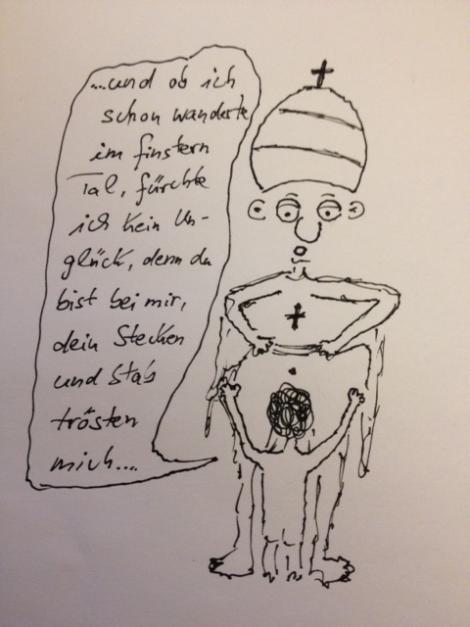 ...und ob ich
schon wanderte
im finstern
Tal, fürchte
ich kein Un-
glück, denn du
bist bei mir,
dein Stecken
und Stab
trösten
mich....